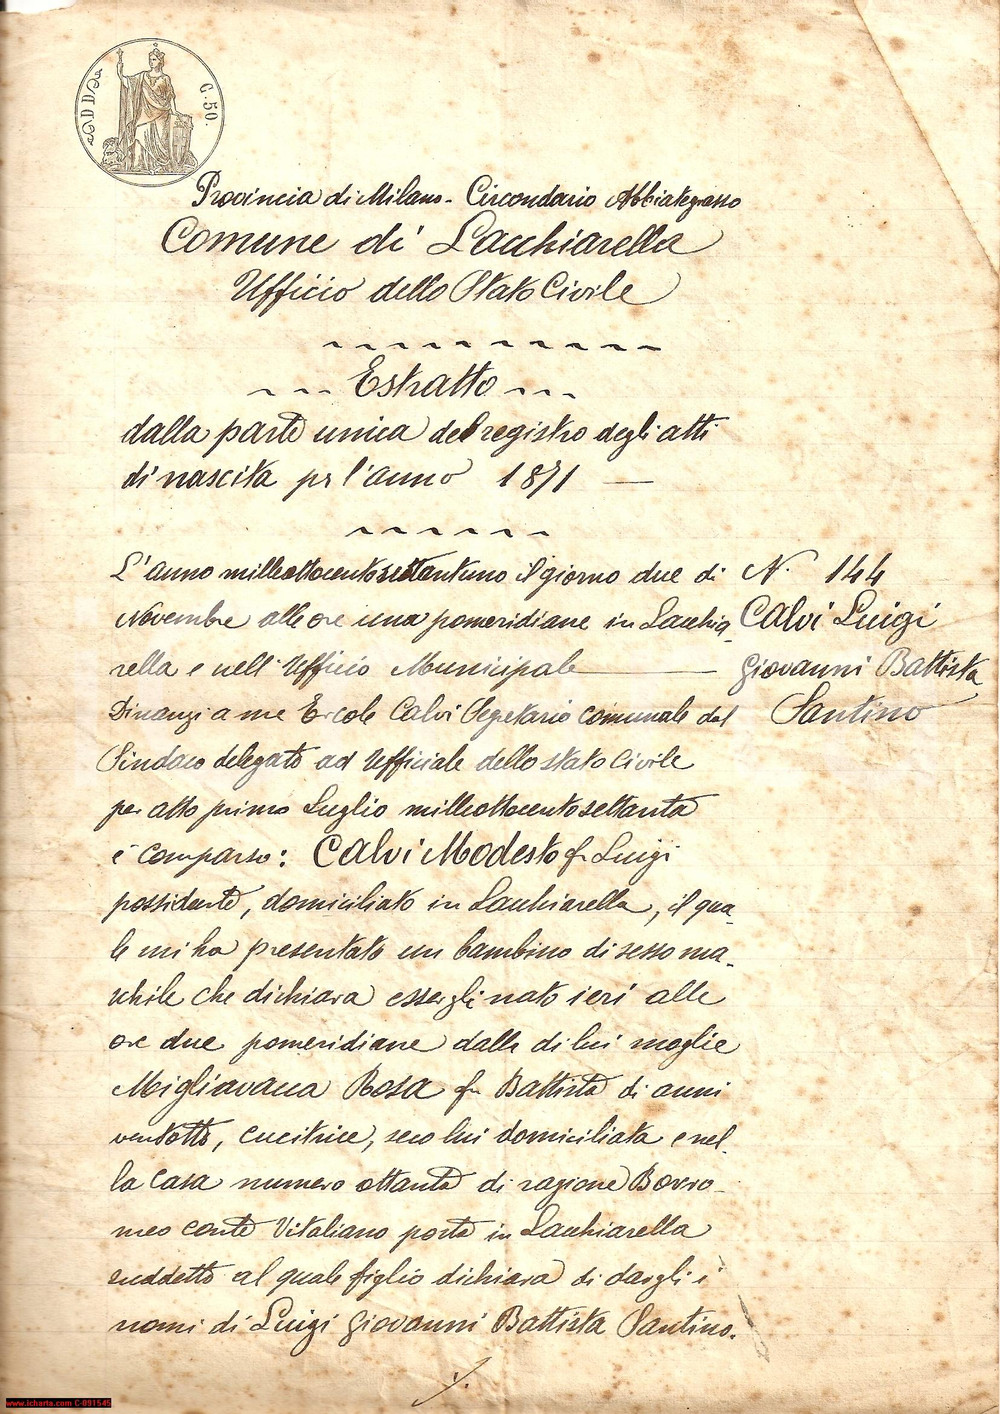 C. 50.
Provincia di Milano - Circondario Abbiategrasso
Comune di Lacchiarella
Ufficio dello Stato Civile
Estratto
dalla parte unica del registro degli atti
di nascita pr l'anno 1871 —
L'anno milleottocentosettantuno il giorno due di
Novembre alle ore una pomeridiane in Lacchia-
rella e nell'Ufficio Municipale
Dinanzi a me Ercole Calvi Segretario comunale dal
Sindaco delegato ad Ufficiale dello stato Civile
per atto primo Luglio milleottocentosettanta
è comparso: Calvi Modesto fu Luigi
possidente, domiciliato in Lacchiarella, il qua-
le mi ha presentato un bambino di sesso ma-
schile che dichiara essergli nato ieri alle
ore due pomeridiane dalla di lui moglie
Migliavacca Rosa fu Battista di anni
ventotto, cucitrice, seco lui domiciliata e nel-
la casa numero ottanta di ragione Borro-
meo conte Vitaliano posta in Lacchiarella
suddetto al quale figlio dichiara di dargli i
nomi di Luigi Giovanni Battista Santino.
N. 144
Calvi Luigi
Giovanni Battista
Santino
./.
www.icharta.com C-091545